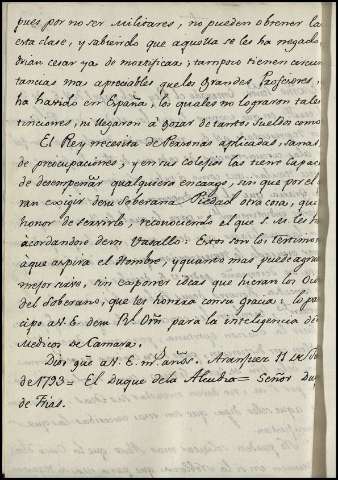 pues por no ser Militares, no pueden obtener la
esta clase, y sabiendo que aquella se les ha negado
drian cesar ya de mortificar; tampoco tienen circun
tancias mas apreciables que los Grandes Profesores,
ha havido en España, los quales no lograron tales
tinciones, ni llegaron à gozar de tantos sueldos como
El Rey necesita de Personas aplicadas, sanas
de preocupaciones, y en sus colegios las tiene capac
de desempeñar qualquiera encargo, sin que por el
ran exigir de su Soberana Piedad otra cosa, que
honor de servirle, reconociendo el que S. M. les h
acordandose de un Vasallo: Estos son los testimon
à que aspira el Hombre, y quando mas puede agra
mejor nave, sin exponer ideas que hieran los Oid
del Soberano, que les honrará con su gracia: lo pa
cipo a V. E. de su Rl. Orn para la inteligencia de
Medicos de Camara.
Dios gûe a V. E. ms. años. Aranjuez 11 de
de 1793 = El Duque de la Alcudia = Señor Du
de Frias.